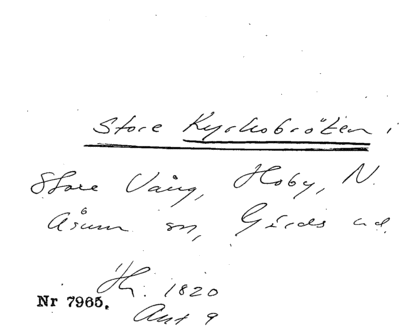 Store Kyrkobröten i
Store Vång, Hoby, N.
Åsum sn, Gärds hd.
Th. 1820
Nr 7965.
Akt 9